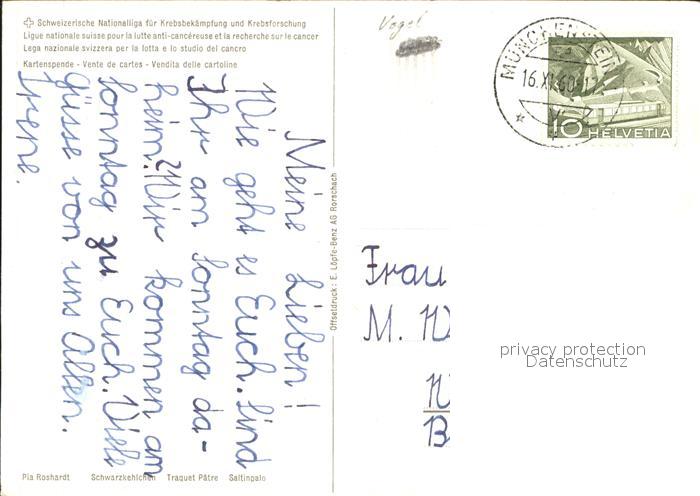 Schweizerische Nationalliga für Krebsbekämpfung und Krebsforschung
Ligue nationale suisse pour la lutte anti-cancéreuse et la recherche sur le cancer
Lega nazionale svizzera per la lotta e lo studio del cancro
Kartenspende - Vente de cartes - Vendita delle cartoline
Meine Lieben!
Wie geht es Euch. Sind
Ihr am Sonntag da-
heim? Wir kommen am
Sonntag zu Euch. Viele
Güsse von uns Allen.
Irene.
Pia Roshardt Schwarzkehlchen Traquet Pâtre Saltinpalo
Offsetdruck: E. Löpfe-Benz AG Rorschach
Vogel
MÜNCHENSTEIN
16.XI.60-17
10 HELVETIA
Frau
M. W
W
B
privacy protection
Datenschutz